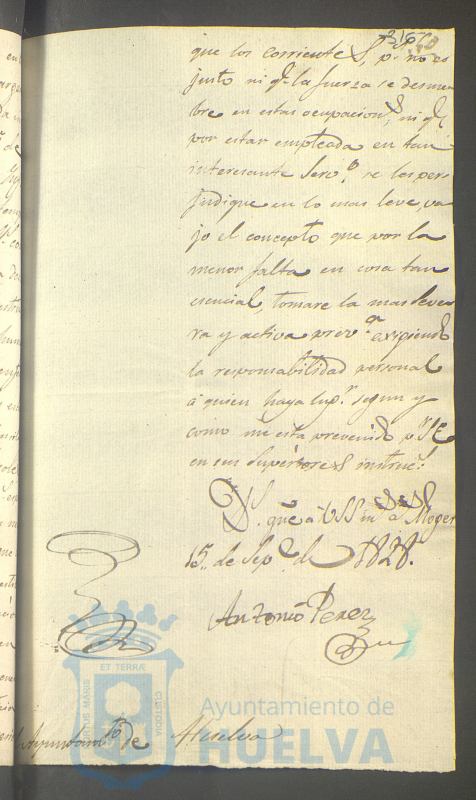 316
que los corrientes, p.r no es
justo ni q.e la fuerza se desmem
bre en estas ocupacion.s, ni q.e
por estar empleada en tan
interesante serv.o se les per
judique en lo mas leve, va
jo el concepto que por la
menor falta en cosa tan
esencial, tomare la mas seve
ra y activa prov.a exigiendo
la responsabilidad personal
a quien haya lug.r segun y
como me esta prevenido p.r SE
en sus Superiores instruc.s
D.s gue a VSS m.s a.s Moguer
15,, de Sep.e de 1828.
Antonio Perez
Ayuntam.to de Huelva
ET TERRÆ
PORTUS MARIS
CUSTODIA
Ayuntamiento de
HUELVA